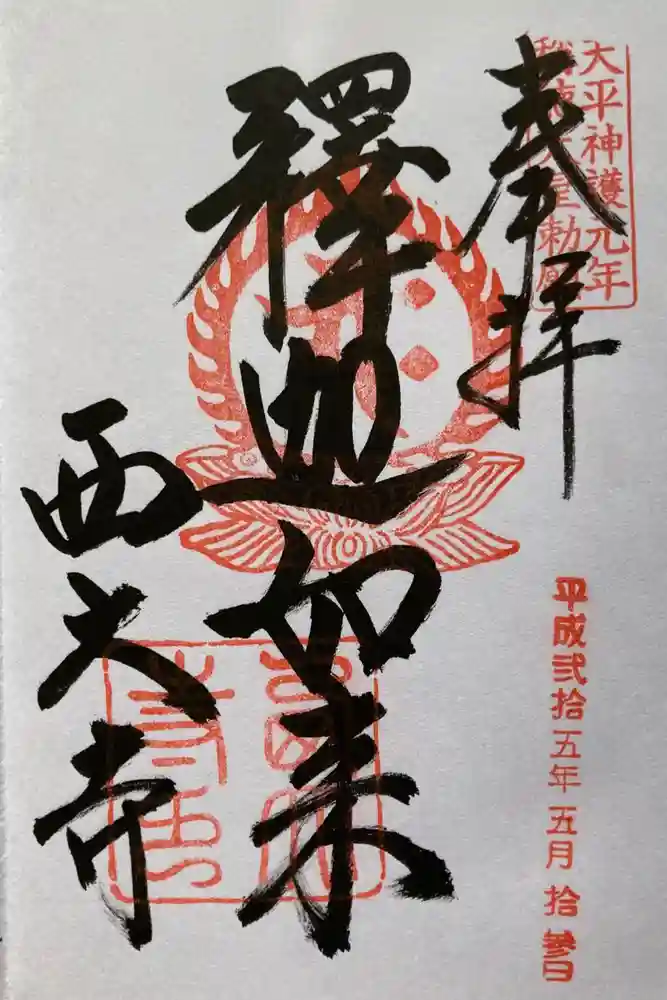 天平神護元年
稱徳天皇勅願
奉拝
平成弐拾五年五月拾参日
釋迦如来
西大寺